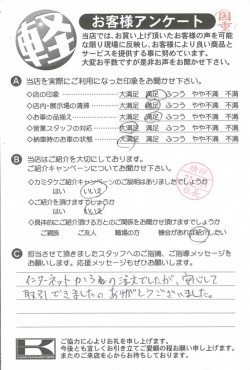 軽
お客様アンケート
当店では、お買い上げ頂いたお客様の声を可能
な限り現場に反映し、お客様により良い商品と
サービスを提供する事に努めています。
大変お手数ですが是非お声をお聞かせ下さい。
A 当店を実際にご利用になった印象をお聞かせ下さい。
◇店の印象 大満足 満足 ふつう やや不満 不満
◇店内・展示場の清掃 大満足 満足 ふつう やや不満 不満
◇お車の品揃え 大満足 満足 ふつう やや不満 不満
◇営業スタッフの対応 大満足 満足 ふつう やや不満 不満
◇納車時のお車の状態 大満足 満足 ふつう やや不満 不満
B 当店はご紹介を大切にしております。
ご紹介キャンペーンについてお聞かせ下さい。
◇カミタケご紹介キャンペーンのご説明はありましたでしょうか
はい いいえ
◇ご紹介を頂けますでしょうか
はい いいえ
◇具体的にご紹介頂ける方とのご関係をお聞かせ頂けますでしょうか
ご家族 ご親族 ご友人 職場の方 機会があれば紹介したい
C 担当させて頂きましたスタッフへのご指摘、ご指導メッセージを
お願いします。応援メッセージもぜひお願いします。
インターネットからの注文でしたが、安心して
取引できました。ありがとうございました。
K
ご協力に心よりお礼を申し上げます。
今後とも宜しくお引き立てご愛顧の程お願い申し上げます。
またのご来店を心からお待ちしております。